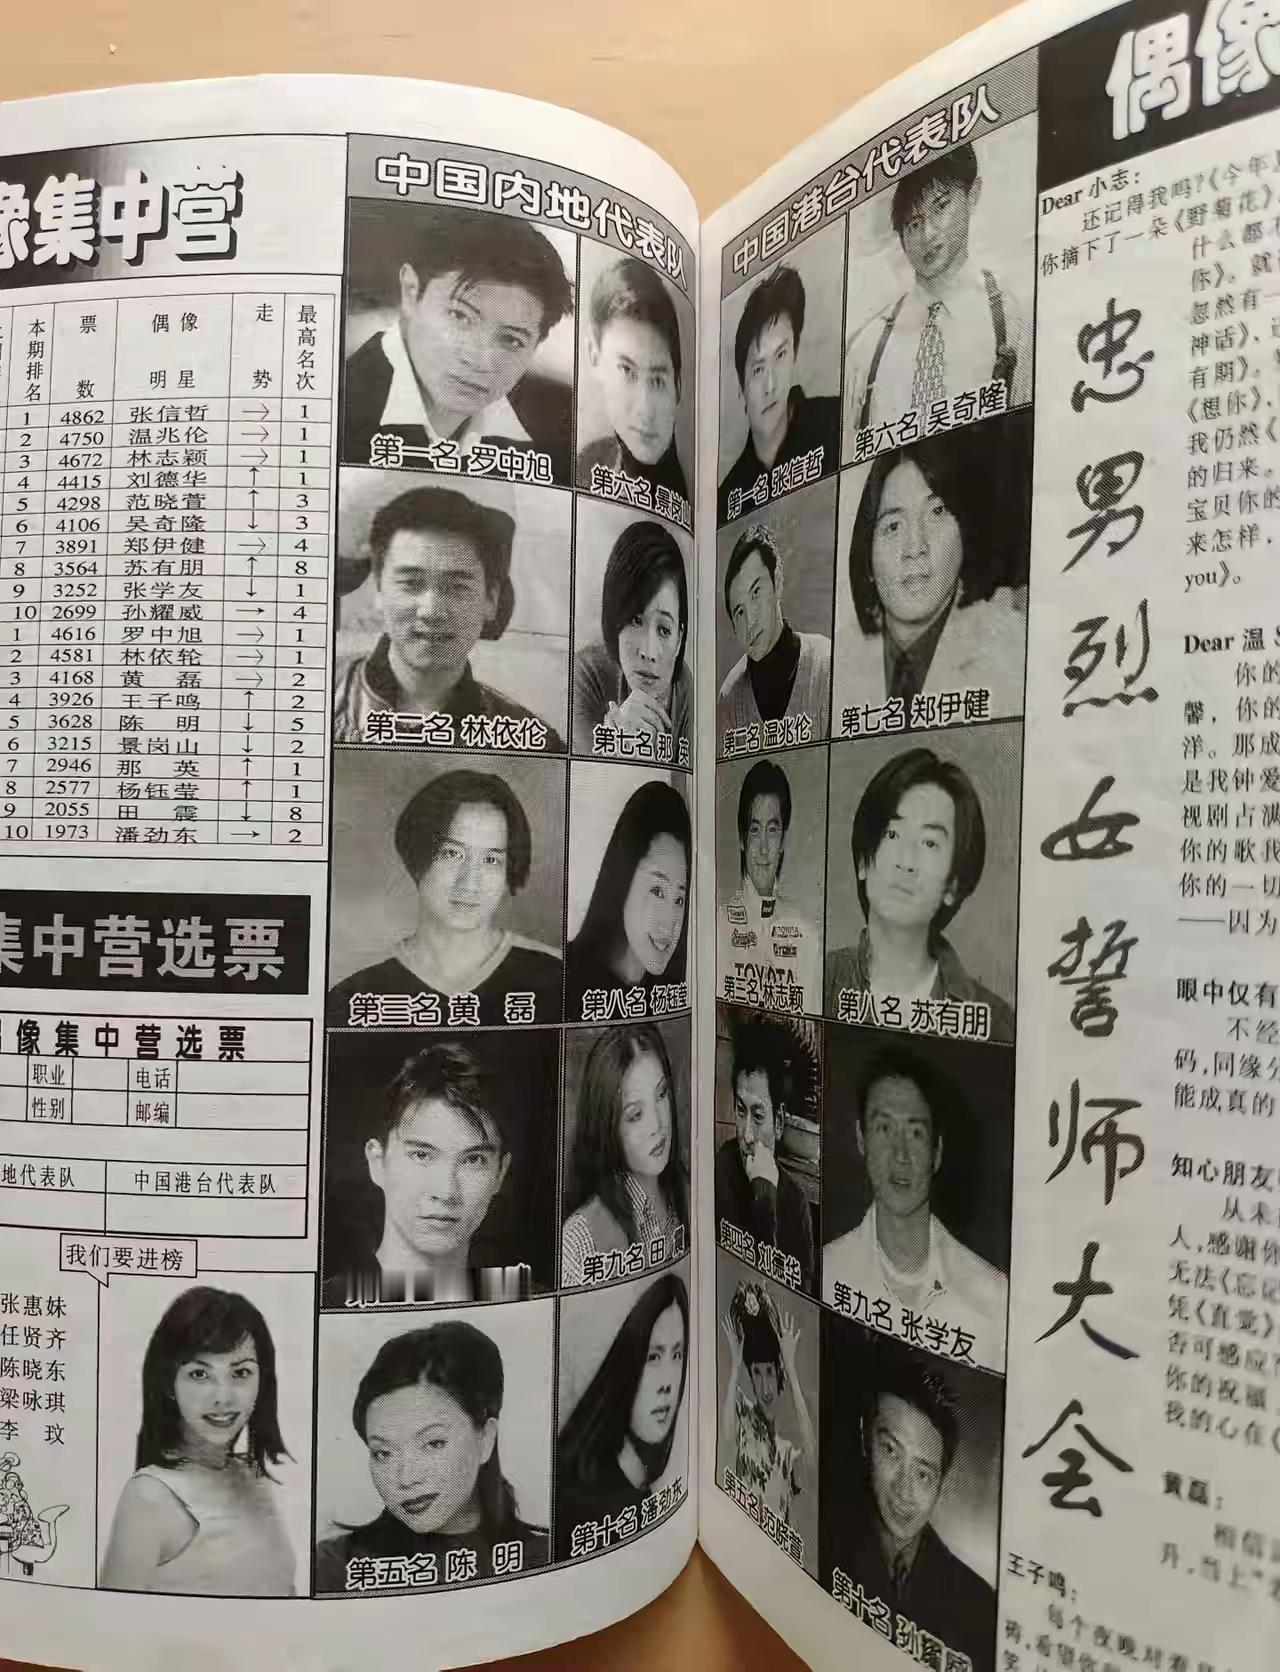 像集中营
本期排名 票数 偶像明星 走势 最高名次
1 4862 张信哲 → 1
2 4750 温兆伦 → 1
3 4672 林志颖 → 1
4 4415 刘德华 ↑ 1
5 4298 范晓萱 ↑ 3
6 4106 吴奇隆 ↓ 3
7 3891 郑伊健 → 4
8 3564 苏有朋 ↑ 8
9 3252 张学友 ↓ 1
10 2699 孙耀威 → 4
1 4616 罗中旭 → 1
2 4581 林依轮 → 1
3 4168 黄磊 → 2
4 3926 王子鸣 ↑ 2
5 3628 陈明 ↓ 5
6 3215 景岗山 ↓ 2
7 2946 那英 ↑ 1
8 2577 杨钰莹 ↑ 1
9 2055 田震 ↓ 8
10 1973 潘劲东 → 2
集中营选票
偶像集中营选票
职业 电话
性别 邮编
地代表队 中国港台代表队
我们要进榜
张惠妹
任贤齐
陈晓东
梁咏琪
李玟
中国内地代表队
第一名 罗中旭
第六名 景岗山
第二名 林依伦
第七名 那英
第三名 黄磊
第八名 杨钰莹
第九名 田震
第五名 陈明
第十名 潘劲东
中国港台代表队
第一名 张信哲
第六名 吴奇隆
第二名 温兆伦
第七名 郑伊健
TOYOTA
第三名 林志颖
第八名 苏有朋
第四名 刘德华
第九名 张学友
第五名 范晓萱
第十名 孙耀威
偶像
忠男烈女誓师大会
Dear 小志：
还记得我吗？《今年
你摘下了一朵《野菊花》
什么都
你》。就
忽然有一
神话》，
有期》，
《想你》，
我仍然《
的归来。
宝贝你的
来怎样，
you》。
Dear 温
你的
馨，你的
洋。那成
是我钟爱
视剧占满
你的歌我
你的一切
——因为
眼中仅有
不经
码，同缘分
能成真的
知心朋友
从未
人，感谢你
无法《忘记
凭《直觉》
否可感应
你的祝福
我的心在《
黄磊：
相信
升，当上“
王子鸣：
每个夜晚对着
祷，看望你